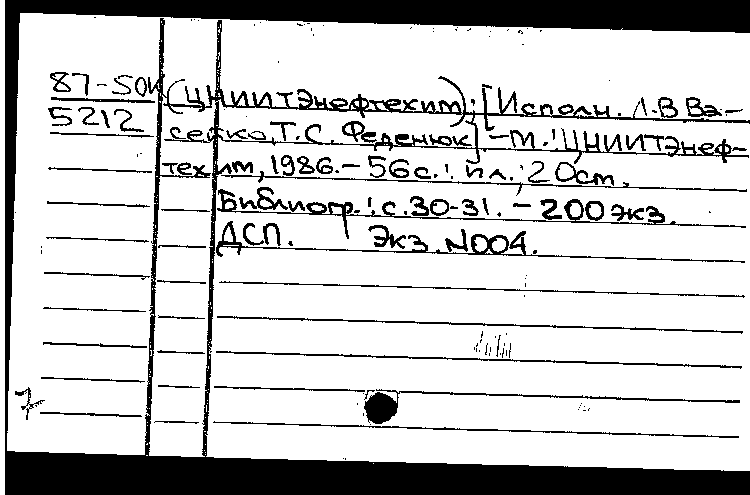 87-5ОК (ЦНИИТЭнефтехим); [Исполн. Л.В Ва-
5212 сейко, Т.С. Феденюк]. -М.: ЦНИИТЭнеф-
техим, 1986.- 56с.: ил.; 20см.
Библиогр.: с.30-31. - 200экз.
ДСП. Экз. N004.
7